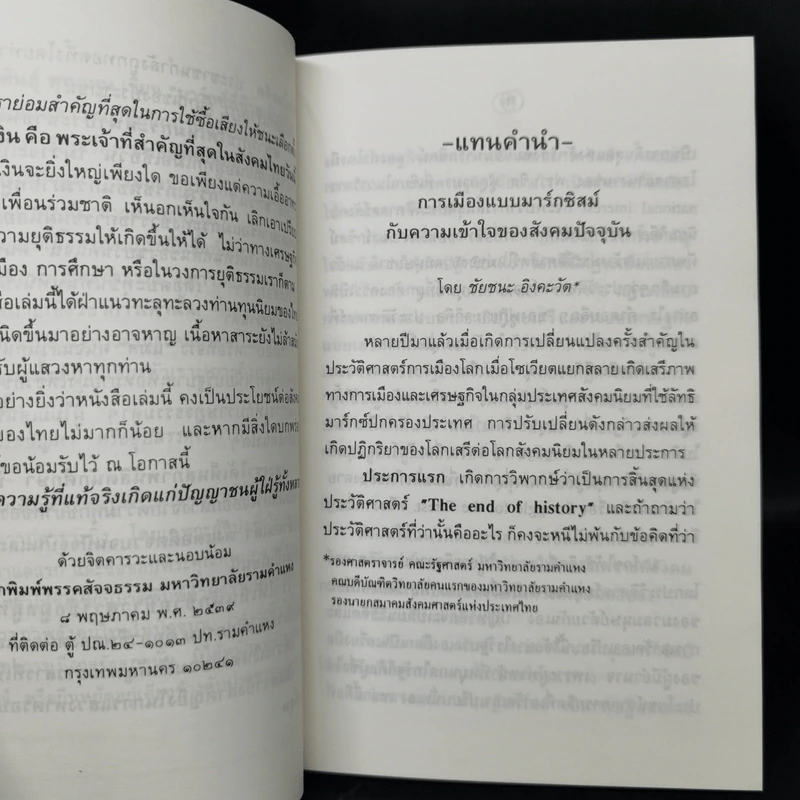 ราย่อมสำคัญที่สุดในการใช้ซื้อเสียงให้ชนะเลือกตั้ง
งิน คือ พระเจ้าที่สำคัญที่สุดในสังคมไทยวันนี้
เงินจะยิ่งใหญ่เพียงใด ขอเพียงแต่ความเอื้ออาทร
เพื่อนร่วมชาติ เห็นอกเห็นใจกัน เลิกเอาเปรียบ
วามยุติธรรมให้เกิดขึ้นให้ได้ ไม่ว่าทางเศรษฐกิจ
มือง การศึกษา หรือในวงการยุติธรรมเราก็ตาม
สือเล่มนี้ได้ฝ่าแนวทะลุทะลวงท่านทุนนิยมของไทย
นิดขึ้นมาอย่างอาจหาญ เนื้อหาสาระยังไม่ล้าสมัย
รับผู้แสวงหาทุกท่าน
อย่างยิ่งว่าหนังสือเล่มนี้ คงเป็นประโยชน์ต่อสังคม
ของไทยไม่มากก็น้อย และหากมีสิ่งใดบกพร่อง
ขอน้อมรับไว้ ณ โอกาสนี้
ความรู้ที่แท้จริงเกิดแก่ปัญญาชนผู้ใฝ่รู้ทั้งหลาย
ด้วยจิตคารวะและนอบน้อม
กพิมพ์พรรคสัจจธรรม มหาวิทยาลัยรามคำแหง
๘ พฤษภาคม พ.ศ. ๒๕๓๙
ที่ติดต่อ ตู้ ปณ.๒๔-๑๐๑๓ ปท.รามคำแหง
กรุงเทพมหานคร ๑๐๒๔๑
-แทนคำนำ-
การเมืองแบบมาร์กซิสม์
กับความเข้าใจของสังคมปัจจุบัน
โดย ชัยชนะ อิงคะวัต*
หลายปีมาแล้วเมื่อเกิดการเปลี่ยนแปลงครั้งสำคัญใน
ประวัติศาสตร์การเมืองโลกเมื่อโซเวียตแยกสลาย เกิดเสรีภาพ
ทางการเมืองและเศรษฐกิจในกลุ่มประเทศสังคมนิยมที่ใช้ลัทธิ
มาร์กซ์ปกครองประเทศ การปรับเปลี่ยนดังกล่าวส่งผลให้
เกิดปฏิกริยาของโลกเสรีต่อโลกสังคมนิยมในหลายประการ
ประการแรก เกิดการวิพากษ์ว่าเป็นการสิ้นสุดแห่ง
ประวัติศาสตร์ "The end of history" และถ้าถามว่า
ประวัติศาสตร์ที่ว่านั้นคืออะไร ก็คงจะหนีไม่พ้นกับข้อคิดที่ว่า
*รองศาสตราจารย์ คณะรัฐศาสตร์ มหาวิทยาลัยรามคำแหง
คณบดีบัณฑิตวิทยาลัยคนแรกของมหาวิทยาลัยรามคำแหง
รองนายกสมาคมสังคมศาสตร์แห่งประเทศไทย